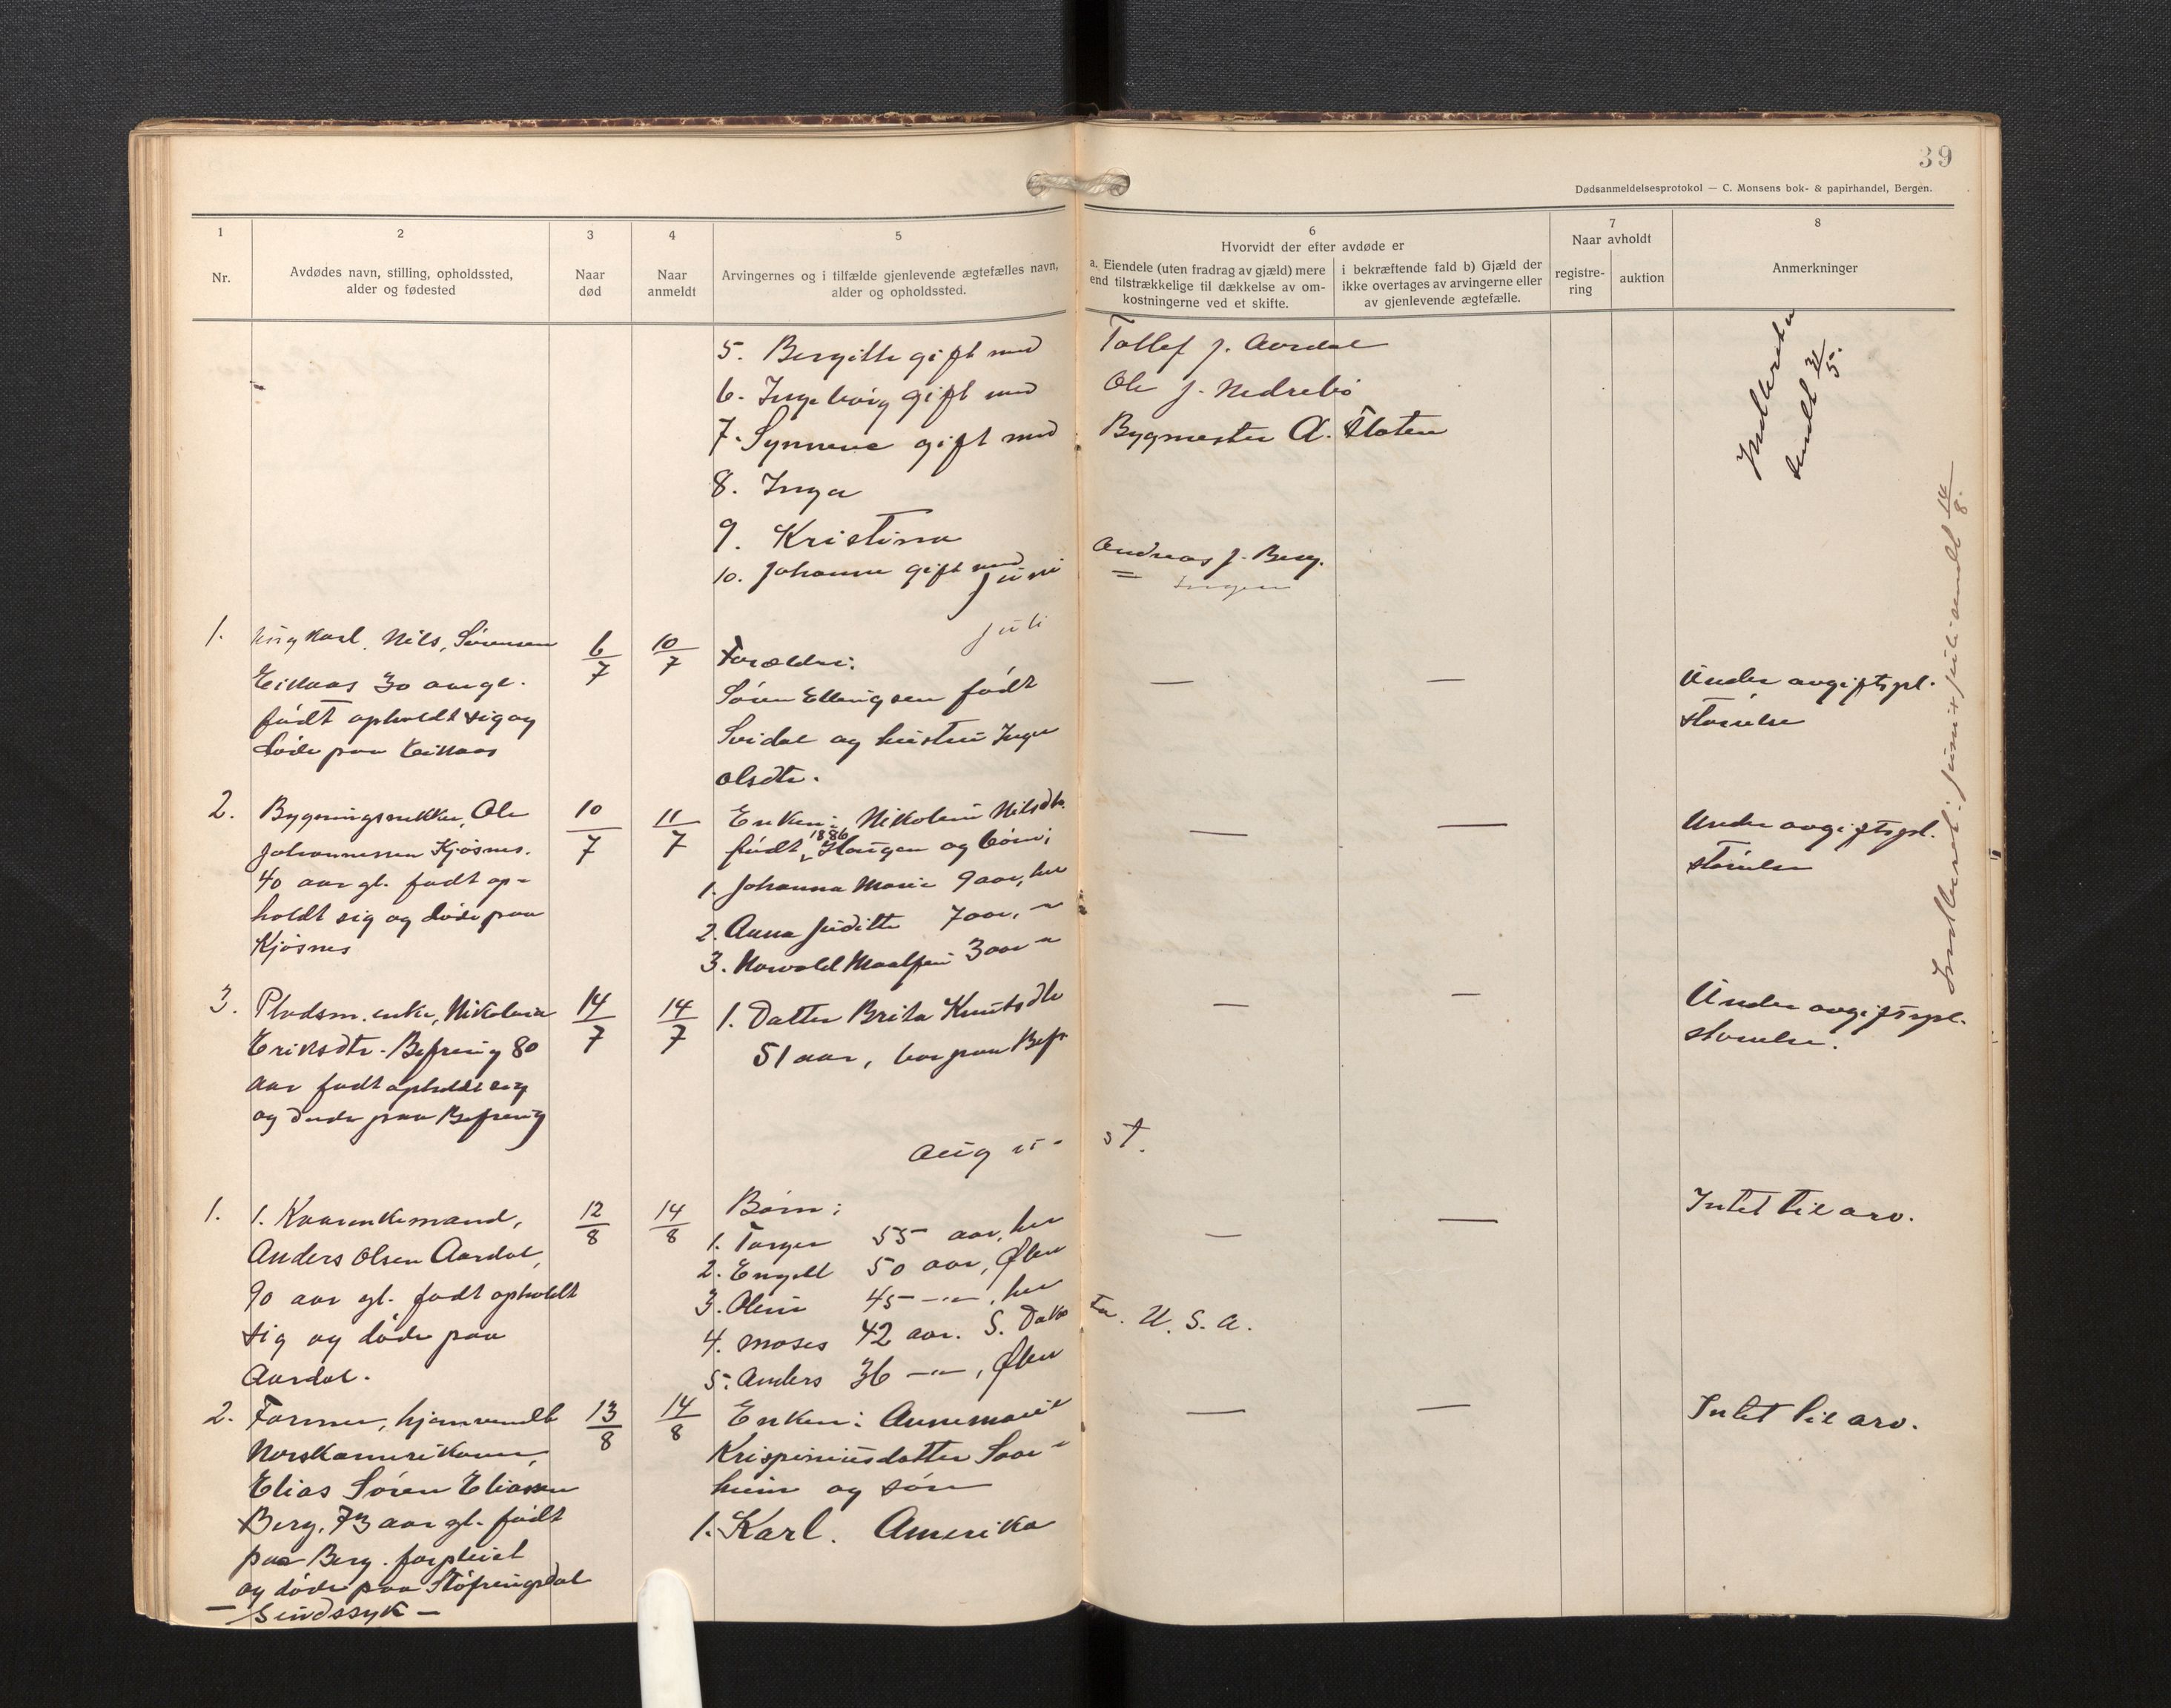 39
Dødsanmeldelsesprotokol — C. Monsens bok- & papirhandel, Bergen.
1
Nr.
2
Avdødes navn, stilling, opholdssted,
alder og fødested
3
Naar
død
4
Naar
anmeldt
5
Arvingernes og i tilfælde gjenlevende ægtefælles navn,
alder og opholdssted.
6
Hvorvidt der efter avdøde er
a. Eiendele (uten fradrag av gjæld) mere
end tilstrækkelige til dækkelse av om-
kostningerne ved et skifte.
i bekræftende fald b) Gjæld der
ikke overtages av arvingerne eller
av gjenlevende ægtefælle.
7
Naar avholdt
registre-
ring
auktion
8
Anmerkninger
5. Bergitte gift med Tollef J. Aardal
6. Ingeborg gift med Ole J. Nedrebö
7. Synneve gift med Bygmester A. Floten
8. Inga
9. Kristina
10. Johanne gift med Andreas J. Berg.
Indberetn
sendt 31/5.
Juni Ingen
Juli
1. Ungkarl, Nils, Sørensen
Eikaas 30 aar gl.
født opholdt sig og
døde paa Eikaas
6/7
10/7
Forældre:
Søren Ellingsen født
Svidal og hustru Inga
Olsdtr.
— —
Under avgiftspl.
størrelse
2. Bygningssnekker, Ole
Johannessen Kjøsnes.
40 aar gl. født op-
holdt sig og døde paa
Kjøsnes
10/7
11/7
Enken: Nikoline Nilsdtr.
født 1886 Haugen og börn:
1. Johanna Marie 9 aar, her
2. Anna Juditte 7 aar, "
3. Norvald Maalfrin 3 aar "
— —
Under avgiftspl.
størrelse
3. Pladsm. enke, Nikolina
Eriksdtr. Befring 80
aar født opholdt sig
og døde paa Befring
14/7
14/7
1. Datter Brita Knutsdtr
51 aar, bor paa Befr
— —
Under avgiftspl.
størrelse.
Indberetn. juni + juli sendt 14/8.
August.
1. 1. Kaarenkemand,
Anders Olsen Aardal,
90 aar gl. født opholdt
sig og døde paa
Aardal.
12/8
14/8
Børn:
1. Torger 55 aar, her
2. Engell 50 aar,
3. Oline 45 —"—, her
4. Moses 42 aar. S. Dakota. U. S. A.
5. Anders 36 —"—,
— —
Intet til arv.
2. Farmer, hjemvendt
Norskamerikaner,
Elias Søren Eliassen
Berg, 73 aar gl. født
paa Berg. forpleiet
og døde paa Støfringsdal
— Sindssyk —
13/8
14/8
Enken: Annemarie
Krispiniusdatter Saar-
heim og søn
1. Karl. Amerika
— —
Intet til arv.